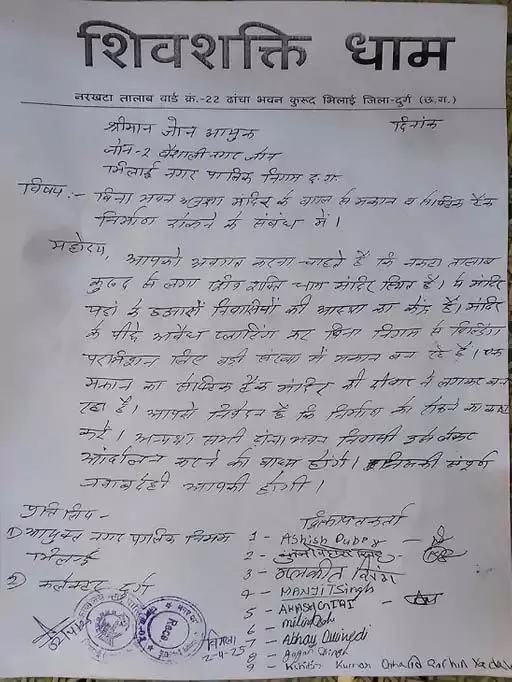 शिवशक्ति धाम
नरखटा तालाब वार्ड क्र.-22 ढांचा भवन कुरूद भिलाई जिला-दुर्ग (छ.ग.)
श्रीमान जोन आयुक्त दिनांक
जोन-2 वैशाली नगर जोन
भिलाई नगर पालिक निगम
विषय:- बिना भवन अनुज्ञा मंदिर के बगल से मकान व सेप्टिक टैंक
निर्माण रोकने के संबंध में।
महोदय, आपको अवगत कराना चाहते हैं कि नकटा तालाब
कुरूद से लगा शिव शक्ति धाम मंदिर स्थित है। ये मंदिर
यहां के हजारों निवासियों की आस्था का केंद्र है। मंदिर
के पीछे अवैध प्लाटिंग कर बिना निगम से बिल्डिंग
परमिशन लिए बड़ी संख्या में मकान बन रहे हैं। एक
मकान का सेप्टिक टैंक मंदिर की दीवार से लगाकर बन
रहा है। आपसे निवेदन है कि निर्माण को रोकने का कष्ट
करें। अन्यथा सभी ढांचा भवन निवासी इसे लेकर
आंदोलन करने को बाध्य होंगे। जिसकी संपूर्ण
जवाबदेही आपकी होगी।
प्रतिलिपि - शिकायतकर्ता
1) आयुक्त नगर पालिक निगम
भिलाई
2) कलेक्टर दुर्ग
1 - Ashish Dubey
2 -
3 -
4 - MANJIT Singh
5 -
6 -
7 - Abhay Dwivedi
8 - Singh
9 - Kumar
2-4-25